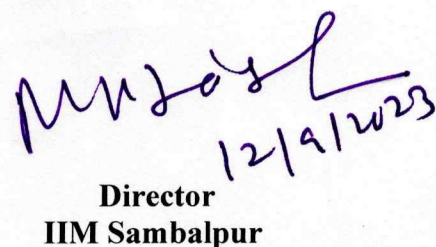 12/9/2023
Director
IIM Sambalpur